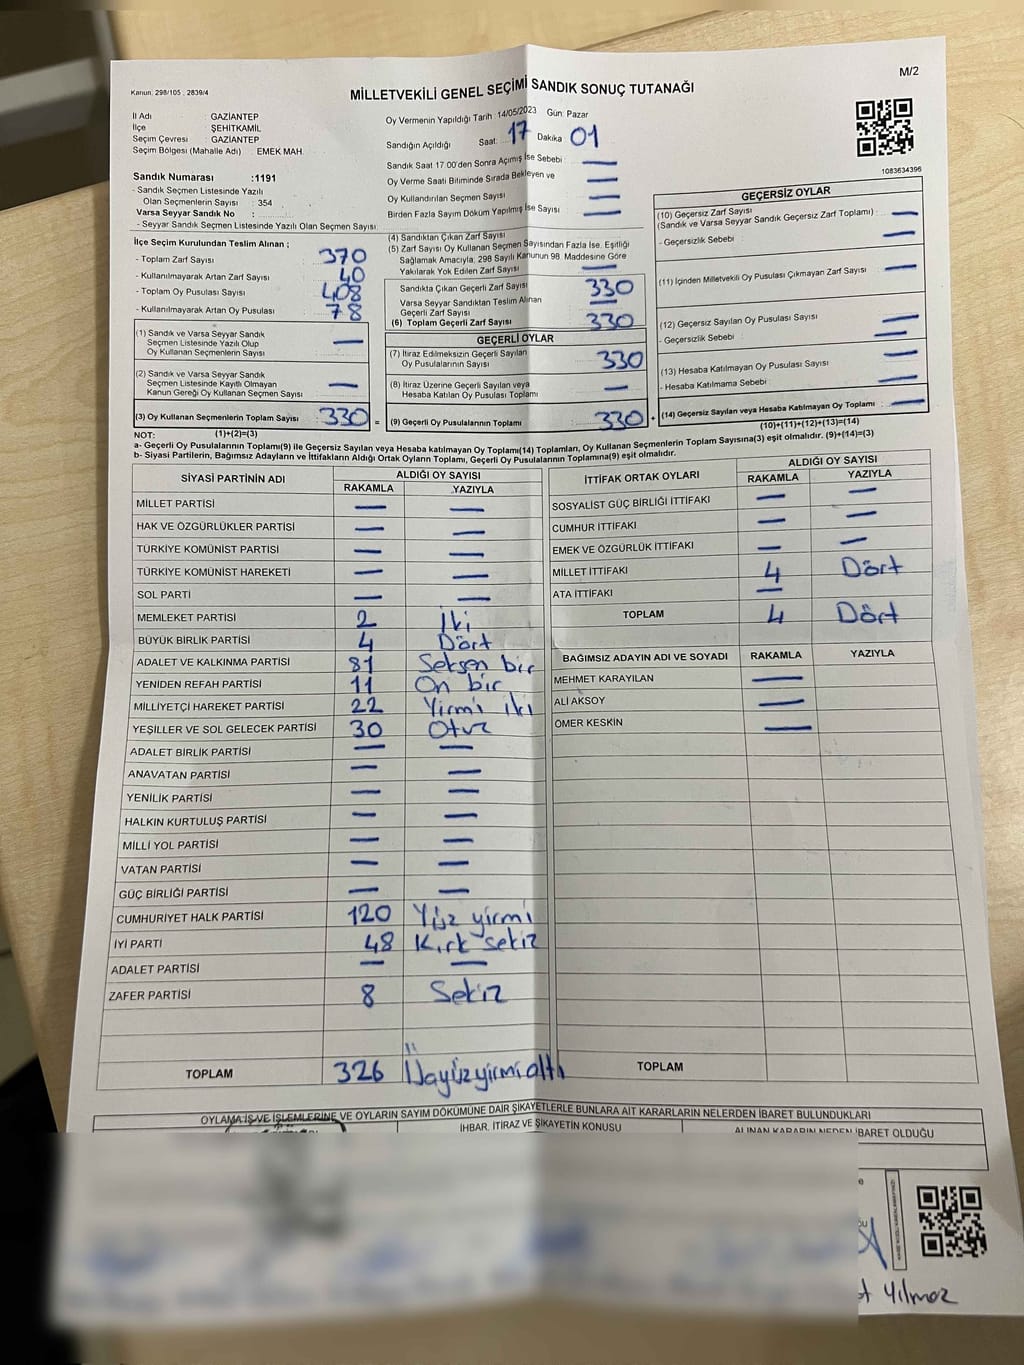 M/2
Kanun: 298/105 , 2839/4
MİLLETVEKİLİ GENEL SEÇİMİ SANDIK SONUÇ TUTANAĞI
İl Adı : GAZİANTEP
İlçe : ŞEHİTKAMİL
Seçim Çevresi : GAZİANTEP
Seçim Bölgesi (Mahalle Adı) : EMEK MAH.
Sandık Numarası :1191
- Sandık Seçmen Listesinde Yazılı
Olan Seçmen Sayısı : 354
Varsa Seyyar Sandık No :
- Seyyar Sandık Seçmen Listesinde Yazılı Olan Seçmen Sayısı
Oy Vermenin Yapıldığı Tarih :14/05/2023 Gün: Pazar
Sandığın Açıldığı Saat: 17 Dakika 01
Sandık Saat 17.00'den Sonra Açımış İse Sebebi : —
Oy Verme Saati Bitiminde Sırada Bekleyen ve —
Oy Kullandırılan Seçmen Sayısı
Birden Fazla Sayım Döküm Yapılmış İse Sayısı —
1083634396
İlçe Seçim Kurulundan Teslim Alınan ;
- Toplam Zarf Sayısı 370
- Kullanılmayarak Artan Zarf Sayısı 40
- Toplam Oy Pusulası Sayısı 408
- Kullanılmayarak Artan Oy Pusulası 78
(1) Sandık ve Varsa Seyyar Sandık
Seçmen Listesinde Yazılı Olup —
Oy Kullanan Seçmenlerin Sayısı
(2) Sandık ve Varsa Seyyar Sandık
Seçmen Listesinde Kayıtlı Olmayan —
Kanun Gereği Oy Kullanan Seçmen Sayısı
(3) Oy Kullanan Seçmenlerin Toplam Sayısı 330 =
(1)+(2)=(3)
(4) Sandıktan Çıkan Zarf Sayısı
(5) Zarf Sayısı Oy Kullanan Seçmen Sayısından Fazla İse, Eşitliği
Sağlamak Amacıyla, 298 Sayılı Kanunun 98. Maddesine Göre
Yakılarak Yok Edilen Zarf Sayısı —
Sandıkta Çıkan Geçerli Zarf Sayısı 330
Varsa Seyyar Sandıktan Teslim Alınan —
Geçerli Zarf Sayısı
(6) Toplam Geçerli Zarf Sayısı 330
GEÇERLİ OYLAR
(7) İtiraz Edilmeksizin Geçerli Sayılan 330
Oy Pusulalarının Sayısı
(8) İtiraz Üzerine Geçerli Sayılan veya —
Hesaba Katılan Oy Pusulası Toplamı
(9) Geçerli Oy Pusulalarının Toplamı 330 +
GEÇERSİZ OYLAR
(10) Geçersiz Zarf Sayısı —
(Sandık ve Varsa Seyyar Sandık Geçersiz Zarf Toplamı) :
- Geçersizlik Sebebi —
(11) İçinden Milletvekili Oy Pusulası Çıkmayan Zarf Sayısı —
(12) Geçersiz Sayılan Oy Pusulası Sayısı —
- Geçersizlik Sebebi —
(13) Hesaba Katılmayan Oy Pusulası Sayısı —
- Hesaba Katılmama Sebebi —
(14) Geçersiz Sayılan veya Hesaba Katılmayan Oy Toplamı —
(10)+(11)+(12)+(13)=(14)
NOT:
a- Geçerli Oy Pusulalarının Toplamı(9) ile Geçersiz Sayılan veya Hesaba katılmayan Oy Toplamı(14) Toplamları, Oy Kullanan Seçmenlerin Toplam Sayısına(3) eşit olmalıdır. (9)+(14)=(3)
b- Siyasi Partilerin, Bağımsız Adayların ve İttifakların Aldığı Ortak Oyların Toplamı, Geçerli Oy Pusulalarının Toplamına(9) eşit olmalıdır.
SİYASİ PARTİNİN ADI ALDIĞI OY SAYISI
RAKAMLA YAZIYLA
MİLLET PARTİSİ — —
HAK VE ÖZGÜRLÜKLER PARTİSİ — —
TÜRKİYE KOMÜNİST PARTİSİ — —
TÜRKİYE KOMÜNİST HAREKETİ — —
SOL PARTİ — —
MEMLEKET PARTİSİ 2 İki
BÜYÜK BİRLİK PARTİSİ 4 Dört
ADALET VE KALKINMA PARTİSİ 81 Seksen bir
YENİDEN REFAH PARTİSİ 11 On bir
MİLLİYETÇİ HAREKET PARTİSİ 22 Yirmi iki
YEŞİLLER VE SOL GELECEK PARTİSİ 30 Otuz
ADALET BİRLİK PARTİSİ — —
ANAVATAN PARTİSİ — —
YENİLİK PARTİSİ — —
HALKIN KURTULUŞ PARTİSİ — —
MİLLİ YOL PARTİSİ — —
VATAN PARTİSİ — —
GÜÇ BİRLİĞİ PARTİSİ — —
CUMHURİYET HALK PARTİSİ 120 Yüz yirmi
İYİ PARTİ 48 Kırk sekiz
ADALET PARTİSİ — —
ZAFER PARTİSİ 8 Sekiz
TOPLAM 326 Üçyüzyirmialtı
İTTİFAK ORTAK OYLARI ALDIĞI OY SAYISI
RAKAMLA YAZIYLA
SOSYALİST GÜÇ BİRLİĞİ İTTİFAKI — —
CUMHUR İTTİFAKI — —
EMEK VE ÖZGÜRLÜK İTTİFAKI — —
MİLLET İTTİFAKI 4 Dört
ATA İTTİFAKI —
TOPLAM 4 Dört
BAĞIMSIZ ADAYIN ADI VE SOYADI RAKAMLA YAZIYLA
MEHMET KARAYILAN —
ALİ AKSOY —
ÖMER KESKİN —
TOPLAM
OYLAMA İŞ VE İŞLEMLERİNE VE OYLARIN SAYIM DÖKÜMÜNE DAİR ŞİKAYETLERLE BUNLARA AİT KARARLARIN NELERDEN İBARET BULUNDUKLARI
İHBAR, İTİRAZ VE ŞİKAYETİN KONUSU
ALINAN KARARIN NEDEN İBARET OLDUĞU
Yılmaz